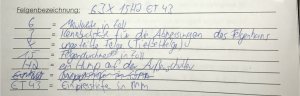 Felgenbezeichnung: 6JX15H2 ET 43
6 = Maulweite in Zoll
J = Kennbuchstabe für die Abmessungen des Felgenhorns
X = ungeteilte Felge (Tiefbettfelge)
15 = Felgendurchmesser in Zoll
H2 =
ET 43 = Einpresstiefe in mm